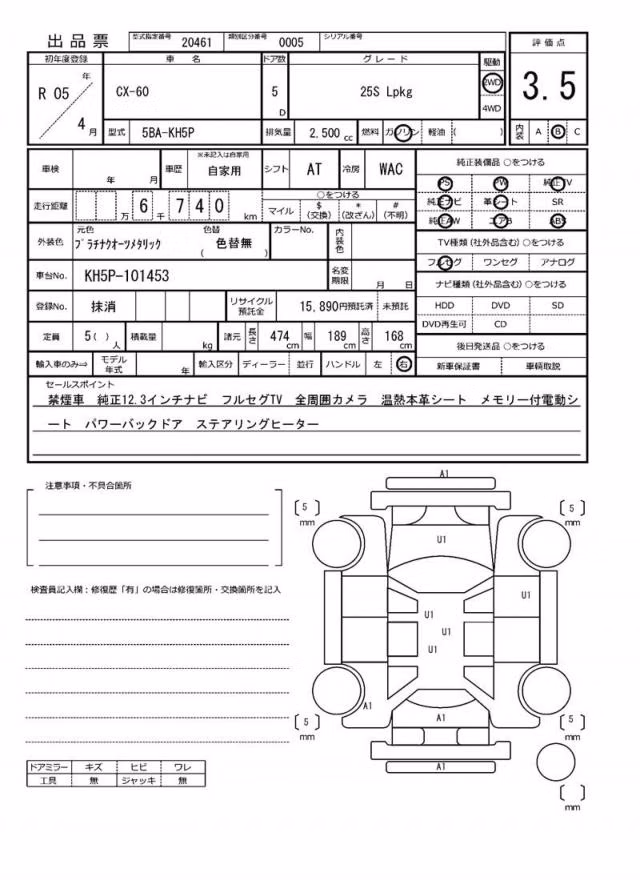 出品票 型式指定番号 20461 類別区分番号 0005 シリアル番号
評価点
初年度登録 車名 ドア数 グレード 駆動
R 05 年 4 月 CX-60 5 D 25S Lpkg 2WD 4WD 3.5
型式 5BA-KH5P 排気量 2,500 cc 燃料 ガソリン 軽油 ( ) 内装 A B C
車検 年 月 車歴 ※未記入は自家用 自家用 シフト AT 冷房 WAC 純正装備品 ○をつける
PS PW 純正TV
走行距離 万 6 千 7 4 0 km ○をつける マイル $(交換) *(改ざん) #(不明) 純正ナビ 革シート SR
純正AW エアB ABS
外装色 元色 プラチナクオーツメタリック 色替 ( 色替無 ) カラーNo. 内装色 TV種類(社外品含む) ○をつける
フルセグ ワンセグ アナログ
車台No. KH5P-101453 名変期限 月 日 ナビ種類(社外品含む) ○をつける
登録No. 抹消 リサイクル預託金 15,890円預託済 未預託 HDD DVD SD
DVD再生可 CD
定員 5( )人 積載量 kg 諸元 長さ 474 cm 幅 189 cm 高さ 168 cm 後日発送品 ○をつける
輸入車のみ⇒ モデル年式 年 輸入区分 ディーラー 並行 ハンドル 左 右 新車保証書 車輌取説
セールスポイント
禁煙車 純正12.3インチナビ フルセグTV 全周囲カメラ 温熱本革シート メモリー付電動シ
ート パワーバックドア ステアリングヒーター
注意事項・不具合箇所
A1
[ 5 ] mm
[ 5 ] mm
U1
検査員記入欄：修復歴「有」の場合は修復箇所・交換箇所を記入
U1
U1
U1
U1
A1
A1
[ 5 ] mm
[ 5 ] mm
A1
ドアミラー キズ ヒビ ワレ
工具 無 ジャッキ 無
[ ] mm